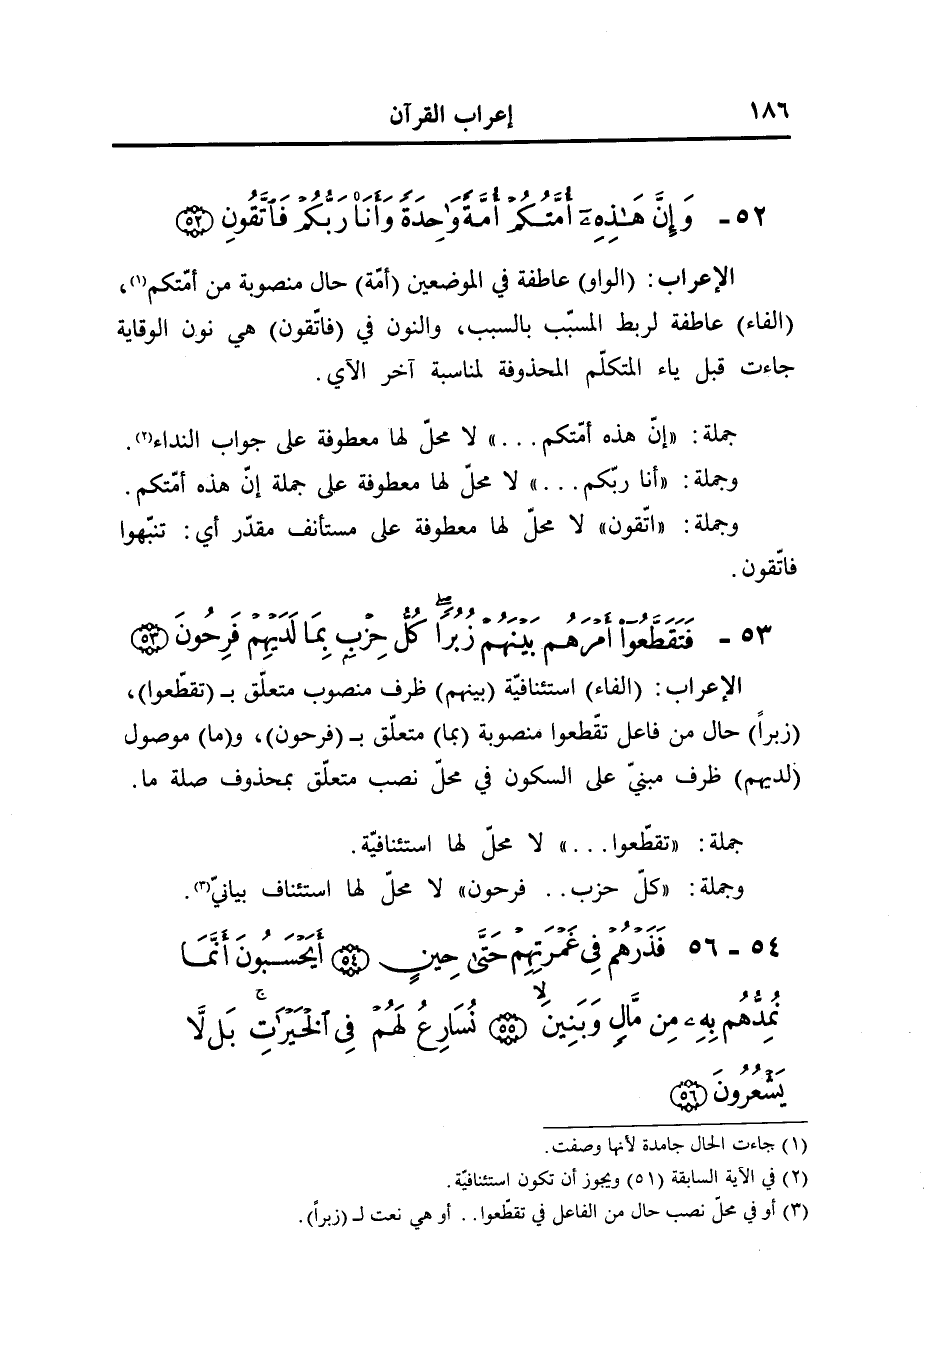 ١٨٦ إعراب القرآن
٥٢ - وَإِنَّ هَـٰذِهِۦٓ أُمَّتُكُمْ أُمَّةً وَٰحِدَةً وَأَنَا۠ رَبُّكُمْ فَٱتَّقُونِ (٥٢)
الإعراب: (الواو) عاطفة في الموضعين (أمّة) حال منصوبة من أمّتكم(١)،
(الفاء) عاطفة لربط المسبّب بالسبب، والنون في (فاتّقون) هي نون الوقاية
جاءت قبل ياء المتكلّم المحذوفة لمناسبة آخر الآي.
جملة: «إنّ هذه أمّتكم...» لا محلّ لها معطوفة على جواب النداء(٢).
وجملة: «أنا ربّكم...» لا محلّ لها معطوفة على جملة إنّ هذه أمّتكم.
وجملة: «اتّقون» لا محلّ لها معطوفة على مستأنف مقدّر أي: تنبّهوا
فاتّقون.
٥٣ - فَتَقَطَّعُوٓا۟ أَمْرَهُم بَيْنَهُمْ زُبُرًا ۖ كُلُّ حِزْبٍۭ بِمَا لَدَيْهِمْ فَرِحُونَ (٥٣)
الإعراب: (الفاء) استئنافيّة (بينهم) ظرف منصوب متعلّق بـ (تقطّعوا)،
(زبراً) حال من فاعل تقّطعوا منصوبة (بما) متعلّق بـ (فرحون)، و(ما) موصول
(لديهم) ظرف مبنيّ على السكون في محلّ نصب متعلّق بمحذوف صلة ما.
جملة: «تقطّعوا...» لا محلّ لها استئنافيّة.
وجملة: «كلّ حزب.. فرحون» لا محلّ لها استئناف بيانيّ(٣).
٥٤ - ٥٦ فَذَرْهُمْ فِى غَمْرَتِهِمْ حَتَّىٰ حِينٍ (٥٤) أَيَحْسَبُونَ أَنَّمَا
نُمِدُّهُم بِهِۦ مِن مَّالٍ وَبَنِينَ ۙ (٥٥) نُسَارِعُ لَهُمْ فِى ٱلْخَيْرَٰتِ ۚ بَل لَّا
يَشْعُرُونَ (٥٦)
(١) جاءت الحال جامدة لأنها وصفت.
(٢) في الآية السابقة (٥١) ويجوز أن تكون استئنافيّة.
(٣) أو في محلّ نصب حال من الفاعل في تقطّعوا.. أو هي نعت لـ (زبراً).